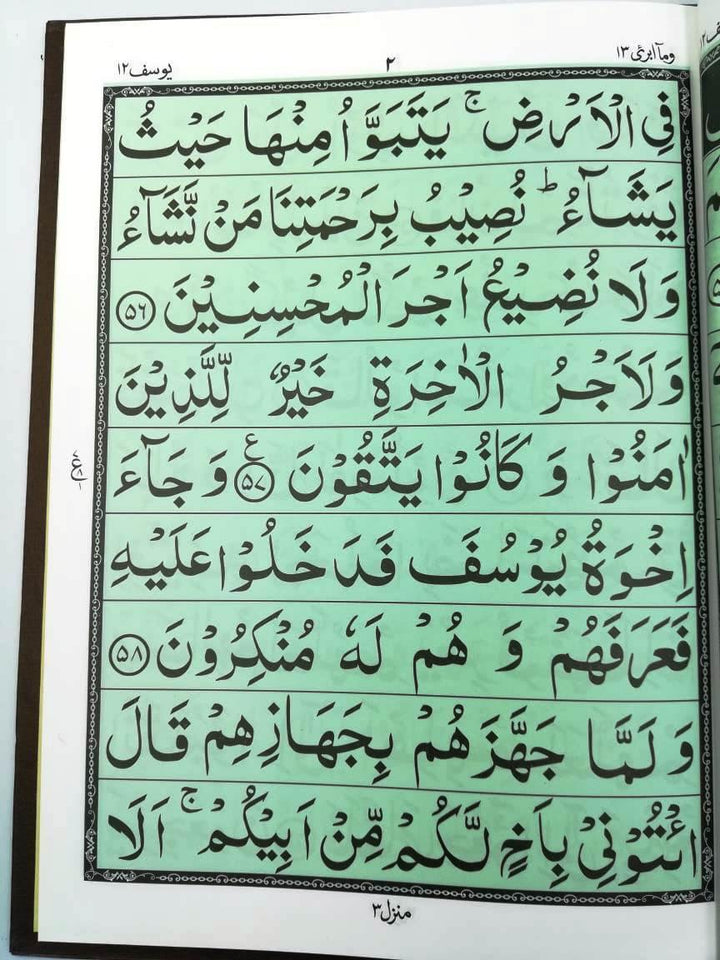 وماۤ ابرئ ١٣
٢
يوسف ١٢
فِي الْاَرْضِ ۚ يَتَبَوَّاُ مِنْهَا حَيْثُ
يَشَآءُ ؕ نُصِيْبُ بِرَحْمَتِنَا مَنْ نَّشَآءُ
وَلَا نُضِيْعُ اَجْرَ الْمُحْسِنِيْنَ ۵۶
وَلَاَجْرُ الْاٰخِرَةِ خَيْرٌ لِّلَّذِيْنَ
اٰمَنُوْا وَ كَانُوْا يَتَّقُوْنَ ۵۷ ع وَ جَآءَ
اِخْوَةُ يُوْسُفَ فَدَخَلُوْا عَلَيْهِ
فَعَرَفَهُمْ وَ هُمْ لَهٗ مُنْكِرُوْنَ ۵۸
وَ لَمَّا جَهَّزَهُمْ بِجَهَازِهِمْ قَالَ
ائْتُوْنِيْ بِاَخٍ لَّكُمْ مِّنْ اَبِيْكُمْ ۚ اَلَا
منزل ٣